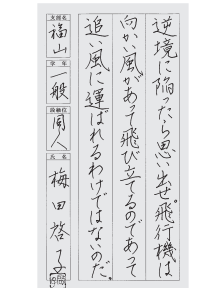 逆境に陥ったら思い出せ。飛行機は
向かい風があって飛び立てるのであって
追い風に運ばれるわけではないのだ。
支部名
福山
学年
一般
段級位
同人
氏名
梅田啓子